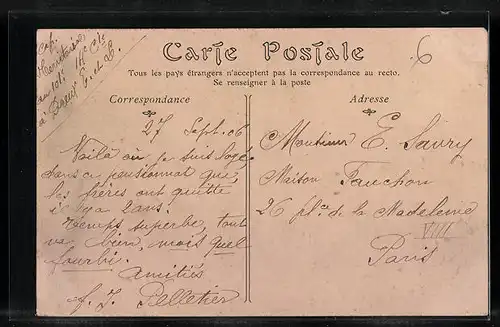 Carte Postale
Tous les pays étrangers n'acceptent pas la correspondance au recto.
Se renseigner à la poste
Correspondance
Adresse
6
Cap.
au 101e 14e Cie
à Dreux E. et L.
27 Sept. 06
Voilà où je suis logé,
dans ce pensionnat que
les frères ont quitté
il y a 2 ans.
Temps superbe, tout
va bien, mais quel
fourbi.
Amitiés
J. Pelletier
Monsieur E. Savry
Maison Fauchon
26 place de la Madeleine
VIII
Paris